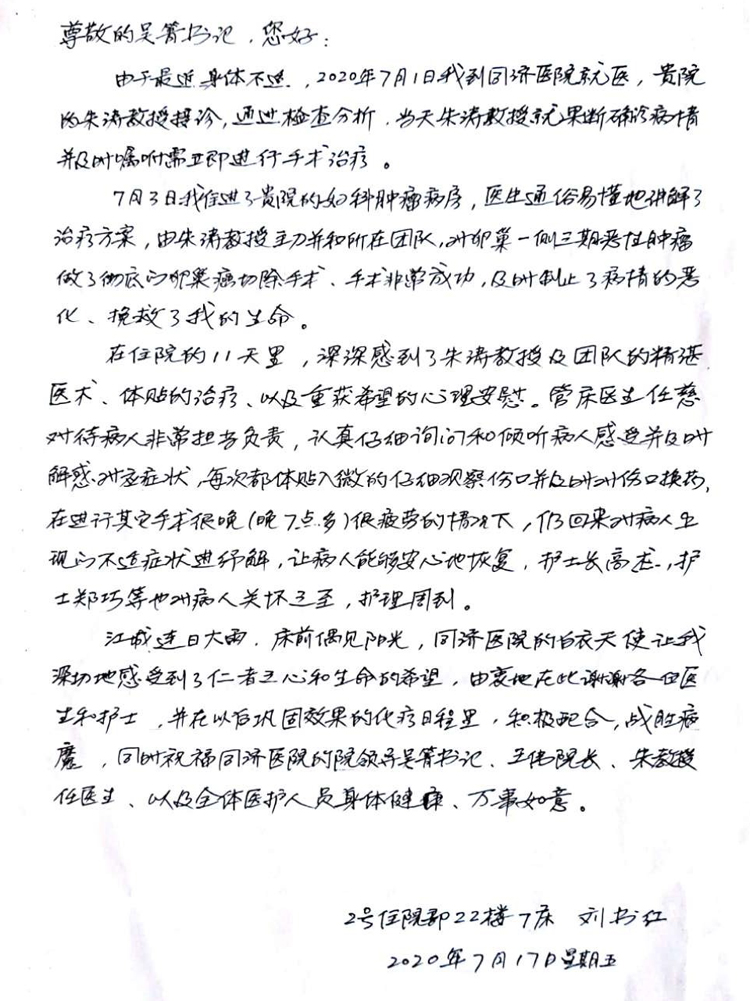 尊敬的吴菁书记，您好：
由于最近身体不适，2020年7月1日我到同济医院就医，贵院
的朱涛教授接诊，通过检查分析，当天朱涛教授就果断确诊病情
并及时嘱咐需立即进行手术治疗。
7月3日我住进了贵院的妇科肿瘤病房，医生通俗易懂地讲解了
治疗方案，由朱涛教授主刀并和所在团队，对卵巢一侧三期恶性肿瘤
做了彻底的卵巢癌切除手术、手术非常成功，及时制止了病情的恶
化、挽救了我的生命。
在住院的11天里，深深感到了朱涛教授及团队的精湛
医术、体贴的治疗、以及重获希望的心理安慰。管床医生任慈
对待病人非常担当负责，认真仔细询问和倾听病人感受并及时
解惑对应症状，每次都体贴入微的仔细观察伤口并及时对伤口换药，
在进行其它手术很晚(晚7点多)很疲劳的情况下，仍回来对病人出
现的不适症状进行纾解，让病人能够安心地恢复，护士长高龙，护
士郑巧等也对病人关怀三至，护理周到。
江城连日大雨，床前偶见阳光，同济医院的白衣天使让我
深切地感受到了仁者之心和生命的希望，由衷地在此谢谢各位医
生和护士，并在以后巩固效果的化疗日程里，积极配合，战胜病
魔，同时祝福同济医院的院领导吴菁书记、王伟院长、朱教授
任医生、以及全体医护人员身体健康、万事如意。
2号住院部22楼7床 刘书红
2020年7月17日星期五